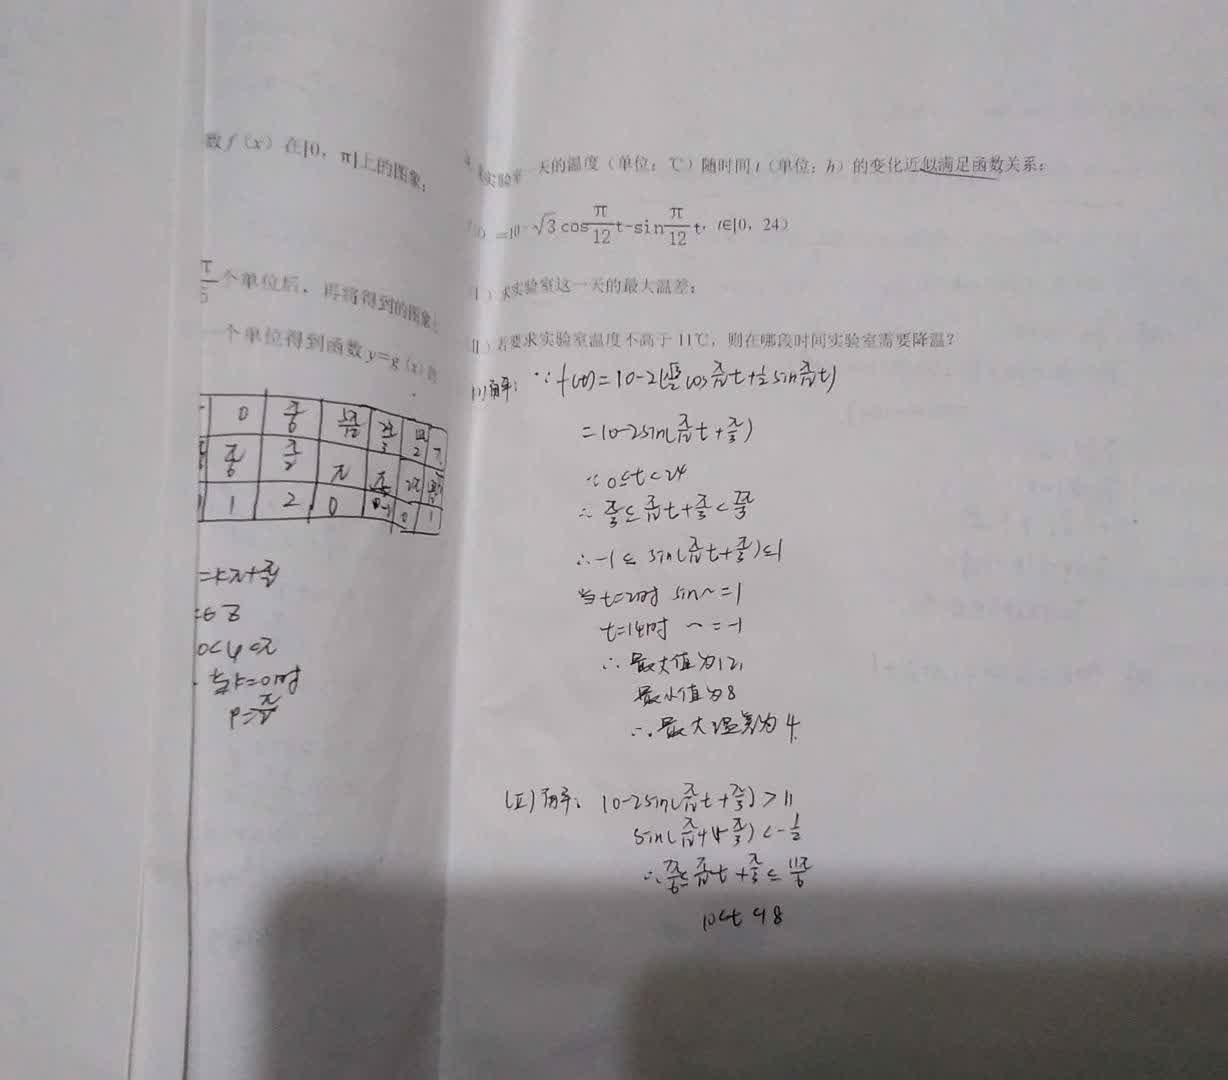 数f(x)在[0,π]上的图象;
个单位后,再将得到的图象
一个单位得到函数y=g(x)的
0 π/6 5π/12 2π/3
π/6 π/2 π 2π
1 2 0 0 1
=kπ+π/2
0<φ<π
当k=0时
φ=π/2
实验室一天的温度(单位:℃)随时间t(单位:h)的变化近似满足函数关系:
=10-√3cosπ/12t-sinπ/12t, t∈[0, 24)
求实验室这一天的最大温差;
若要求实验室温度不高于11℃,则在哪段时间实验室需要降温?
(1)解: ∵f(t)=10-2(√3/2cosπ/12t+1/2sinπ/12t)
=10-2sin(π/12t+π/3)
∵0≤t<24
∴π/3≤π/12t+π/3<7π/3
∴-1≤sin(π/12t+π/3)≤1
当t=2时 sin~=1
t=14时 ~=-1
∴最大值为12,
最小值为8
∴最大温差为4.
(Ⅱ)解: 10-2sin(π/12t+π/3)>11
sin(π/12t+π/3)<-1/2
∴7π/6≤π/12t+π/3≤11π/6
10<t<18